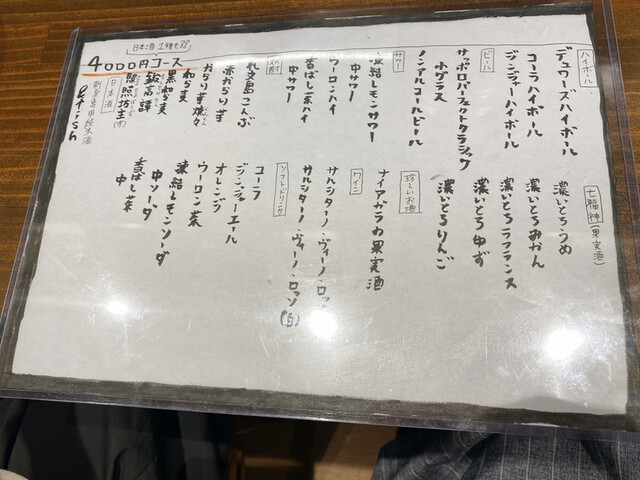 ハイボール
デュワーズハイボール
コーラハイボール
ジンジャーハイボール
ビール
サッポロパーフェクトクラシック
小グラス
ノンアルコールビール
サワー
凍結レモンサワー
中サワー
ウーロンハイ
香ばし茶ハイ
中サワー
礼文島こんぶ
赤おらりす
おらりす
和らぎ
黒和らぎ
敏高譚
照照坊主
日本酒
日本酒 1種七酌
4000円コース
七福神(果実酒)
濃いとろうめ
濃いとろみかん
濃いとろラフランス
濃いとろゆず
濃いとろりんご
珍しいお酒
ナイアガラの果実酒
ワイン
サルジターノ・ヴィーノ・ロッソ
サルジターノ・ヴィーノ・ロッソ(白)
ソフトドリンク
コーラ
ジンジャーエール
オレンジ
ウーロン茶
凍結レモンソーダ
中ソーダ
香ばし茶
中